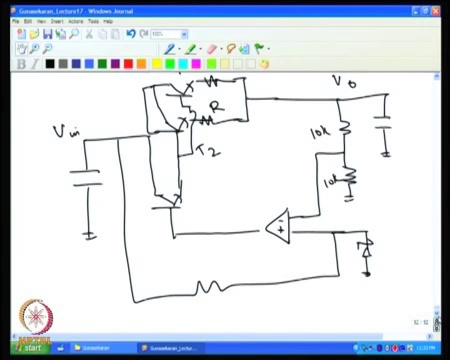 Gunasekaran_Lecture17 - Windows Journal
File Edit View Insert Actions Tools Help
100%
B I
V₀
R
Vin
10k
T₂
10k
- +
12 / 12
NPTEL
start
Gunasekaran
Gunasekaran_Lectur...